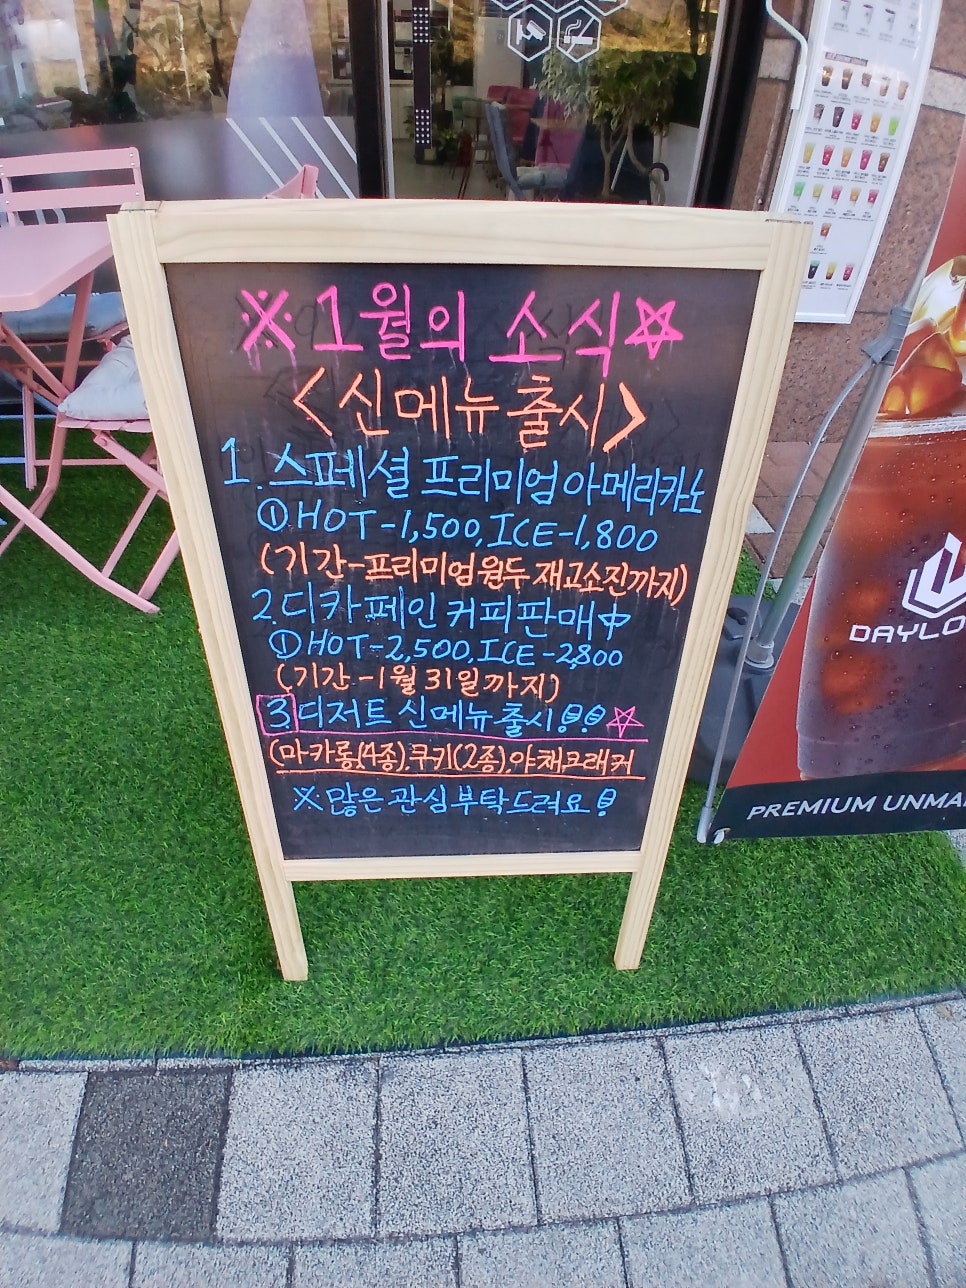 ※1월의 소식☆
<신메뉴 출시>
1. 스페셜 프리미엄 아메리카노
①HOT-1,500, ICE-1,800
(기간-프리미엄 원두 재고소진까지)
2. 디카페인 커피 판매中
①HOT-2,500, ICE-2,800
(기간-1월 31일까지)
3. 디저트 신메뉴 출시!!☆
(마카롱(4종), 쿠키(2종), 야채크래커
※많은 관심 부탁드려요!
DAYLO
PREMIUM UNMA